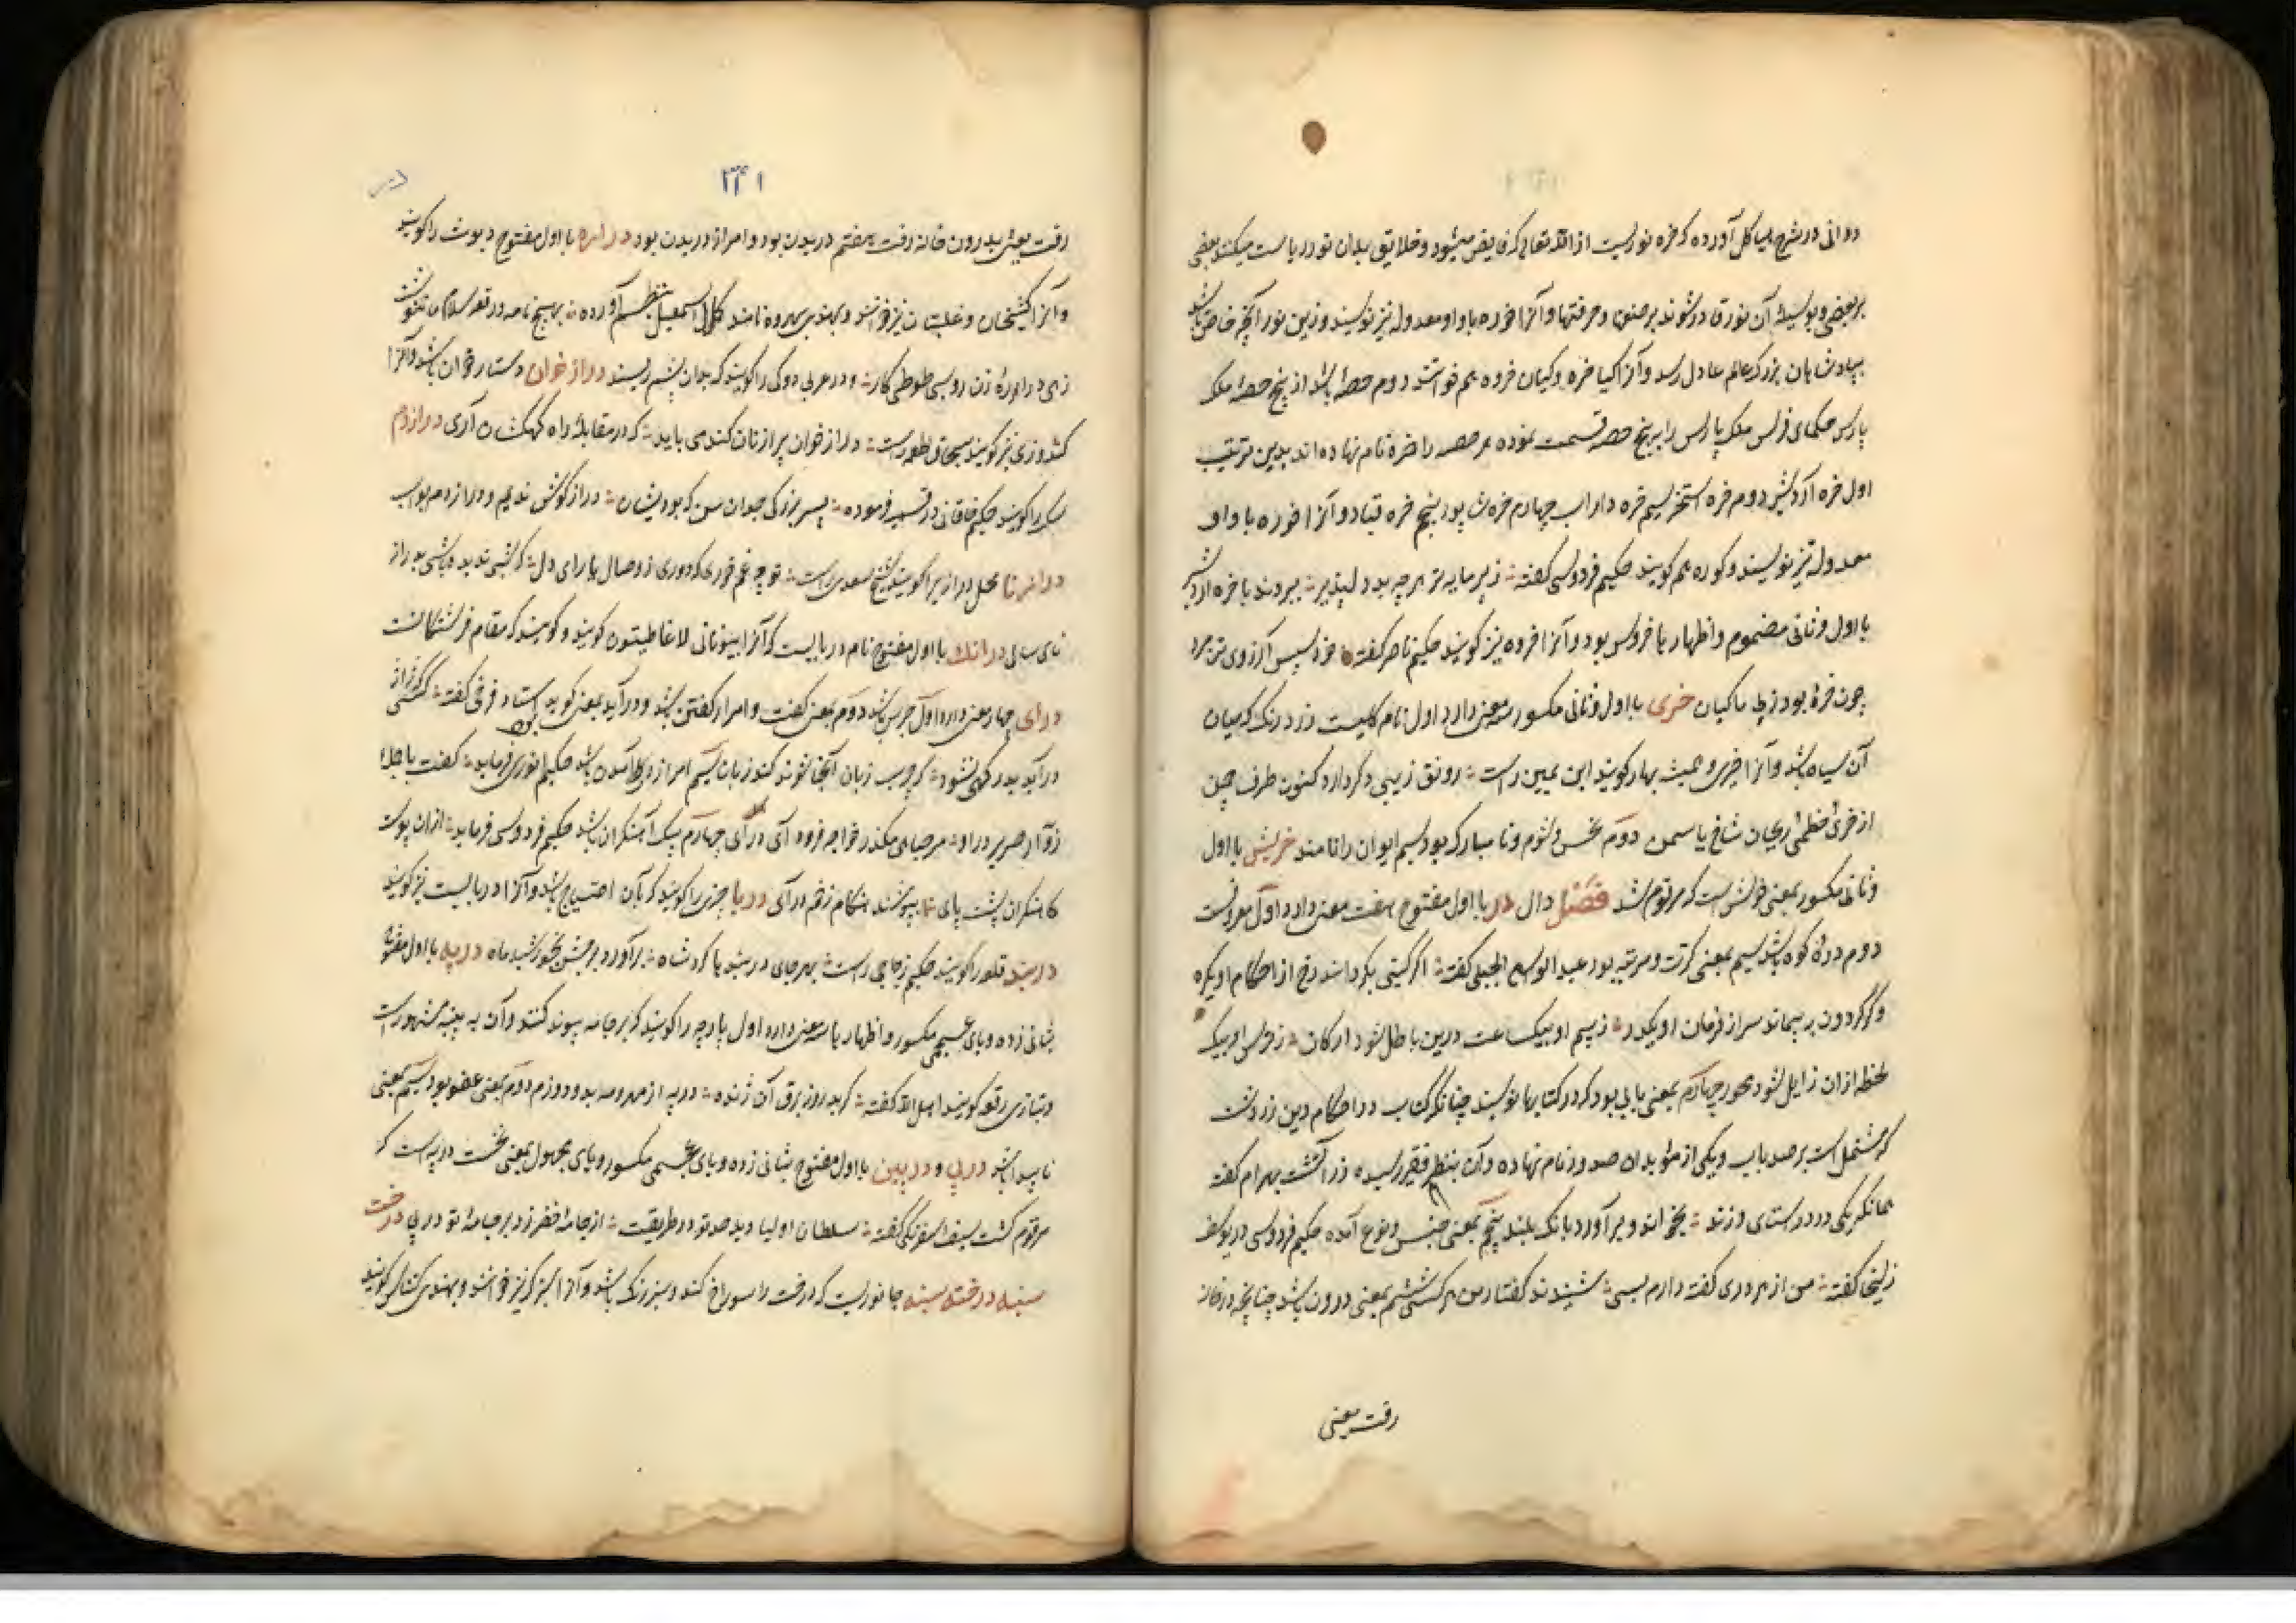 دوانی در شرح هیاکل آورده که خره نوریست از الله تعالی که فایض میشود و خلایق بدان نور ریاست میکنند بعضی
بر بعضی و بوسیله آن نور قادر شوند بر صنعتها و حرفتها و آنرا خوره با واو معدوله نیز نویسند و ازین نور آنچه خاص باشد
بپادشاهان بزرگ عالم عادل رسد و آنرا کیا خره و کیان خره هم خوانند دوم حصه باشد از پنج حصه ملک
پارس حکمای فرس ملک پارس را بر پنج حصه قسمت نموده هر حصه را خره نام نهاده اند بدین ترتیب
اول خره اردشیر دوم خره استخر سیم خره داراب چهارم خره شاپور پنجم خره قباد و آنرا خوره با واو
معدوله نیز نویسند و کوره هم گویند حکیم فردوسی گفته ز پرمایه تر هرچه بد دلپذیر ببردند با خره اردشیر
با اول و ثانی مضموم و اظهار ها خروس بود و آنرا خروه نیز گویند حکیم ناصر گفته پس آرزوی تن مرو
چون خره بود ز پی ماکیان خری با اول و ثانی مکسور سه معنی دارد اول نام گلیست زرد رنگ که میان
آن سیاه باشد و آنرا خیری و همیشه بهار گویند ابن یمین راست رونق زیبی دگر دارد کنون طرف چمن
از خری خطمی ریحان شاخ یاسمن دوم نحس و شوم و نا مبارک بود سیم ایوان را نامند خریش با اول
و ثانی مکسور بمعنی خراش است که مرقوم شد فصل دال در با اول مفتوح هفت معنی دارد اول معروفست
دوم دره کوه باشد سیم بمعنی کرت و مرتبه بود عبد الواسع الجبلی گفته اگر گیتی بگرداند رخ از احکام او یکره
وگر گردون بپیماند سر از فرمان او یکدر ز بیم او بیک ساعت درین باطل شود ارکان ز هول او بیک
لحظه ازان زایل شود محور چهارم بمعنی بابی بود که در کتابها نویسند چنانکه کتاب در احکام دین زردشت
که مشتمل است بر صد باب و یکی از مؤبدان صد در نام نهاده و آن بنظر فقیر رسیده زراتشت بهرام گفته
همانگه یکی در در استای و زند بخواند و برآورد بانگ بلند پنجم بمعنی جنس و نوع آمده حکیم فردوسی در یوسف
زلیخا گفته من از هر دری گفته دارم بسی شنیدند گفتار من هر کسی ششم بمعنی درون باشد چنانچه در خانه
رفت یعنی
۳۴۱
رفت یعنی بدرون خانه رفت هفتم دریدن بود و امر از دریدن بود با اول مفتوح دیوث را گویند
و آنرا و غلتبان نیز خوانند و بهندی بهروه نامند کمال اسمعیل بنظم آورده
و در عربی دوکی را گویند که بدان پشم ریسند دراز خوان دستار خوان باشد و آنرا
کندوری نیز گویند بسحاق اطعمه راست دراز خوان پر از نان گندمی باید که در مقابله راه کهکشان آری دراز دم
سگ را گویند حکیم خاقانی در قسمیه فرموده دراز گوش ندیم و دراز دم بواب
درازنا محل دراز را گویند شیخ سعدی راست تو چه غم خوری که دوری ز وصال یار ای دل
درانک با اول مفتوح نام دریاییست که آنرا بیونانی گویند و گویند که مقام فرشتگانست
درای چهار معنی دارد اول جرس باشد دوم بمعنی گفت و امر از گفتن باشد و درآید بمعنی گوید استاد فرخی گفته
درآید بدر سیم امر از درآمدن باشد حکیم انوری فرماید گفت باجلال
خواجه فرود آی درآی چهارم پتک آهنگران باشد حکیم فردوسی فرماید ازان پوست
کاهنگران پشت پای بپوشند هنگام زخم درآی دربا چیزی را گویند که بآن احتیاج باشد و آنرا دربایست نیز گویند
دربند قلعه را گویند حکیم زجاجی راست بهر جای دربند باکرد شاه برآورد برجش بخورشید ماه درپه با اول مفتوح
بثانی زده و بای عجمی مکسور و اظهار ها سه معنی دارد اول پارچه را گویند که بر جامه پیوند کنند و آن به پینه مشهور است
و بتازی رقعه گویند دوم بمعنی عضو بود سیم بمعنی
ناپیدا باشد درپی و درپین با اول مفتوح بثانی زده و بای عجمی مکسور و یای مجهول بمعنی نخست درپه است که
مرقوم گشت سیف اسفرنگی گفته سلطان اولیا دید صد تو در طریقت از جامه خضر زد بر جامه تو درپی درخت
سنبه درخته سنبه جانوریست که درخت را سوراخ کند و سبز رنگ باشد و آنرا سبزک نیز خوانند و بهندی گویند